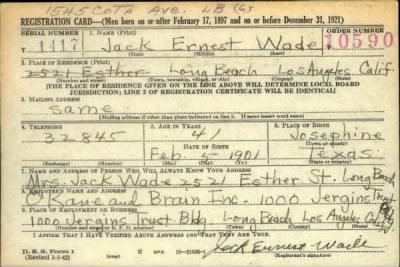 1545 COTA AVE. LB (6)
REGISTRATION CARD—(Men born on or after February 17, 1897 and on or before December 31, 1921)
SERIAL NUMBER 1. NAME (Print) ORDER NUMBER
1417 Jack Ernest Wade 10590
(First) (Middle) (Last)
2. PLACE OF RESIDENCE (Print)
2521 Esther Long Beach Los Angeles Calif.
(Number and street) (Town, township, village, or city) (County) (State)
[THE PLACE OF RESIDENCE GIVEN ON THE LINE ABOVE WILL DETERMINE LOCAL BOARD
JURISDICTION; LINE 2 OF REGISTRATION CERTIFICATE WILL BE IDENTICAL]
3. MAILING ADDRESS
Same
[Mailing address if other than place indicated on line 2. If same insert word same]
4. TELEPHONE 5. AGE IN YEARS 6. PLACE OF BIRTH
32845 41 Josephine
DATE OF BIRTH (Town or county)
Feb. 1901 Texas
(Exchange) (Number) (Mo.) (Day) (Yr.) (State or country)
7. NAME AND ADDRESS OF PERSON WHO WILL ALWAYS KNOW YOUR ADDRESS
Mrs. Jack Wade 2521 Esther St. Long Beach
8. EMPLOYER'S NAME AND ADDRESS
O'Kane and Brain Inc. - 1000 Jergins Trust Bldg
9. PLACE OF EMPLOYMENT OR BUSINESS
1000 Jergins Trust Bldg. Long Beach Los Angeles Calif
(Number and street or R. F. D. number) (Town) (County) (State)
I AFFIRM THAT I HAVE VERIFIED ABOVE ANSWERS AND THAT THEY ARE TRUE.
D. S. S. Form 1 Jack Ernest Wade
(Revised 1-1-42) (over)